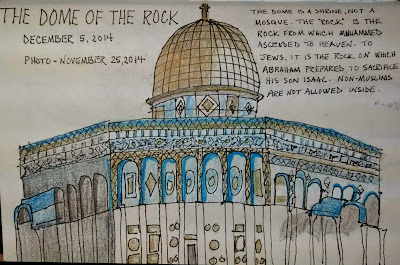 THE DOME OF THE ROCK
DECEMBER 5, 2014
PHOTO - NOVEMBER 25, 2014
THE DOME IS A SHRINE, NOT A
MOSQUE. THE "ROCK" IS THE
ROCK FROM WHICH MUHAMMED
ASCENDED TO HEAVEN. TO
JEWS, IT IS THE ROCK ON WHICH
ABRAHAM PREPARED TO SACRIFICE
HIS SON ISAAC. NON-MUSLIMS
ARE NOT ALLOWED INSIDE.